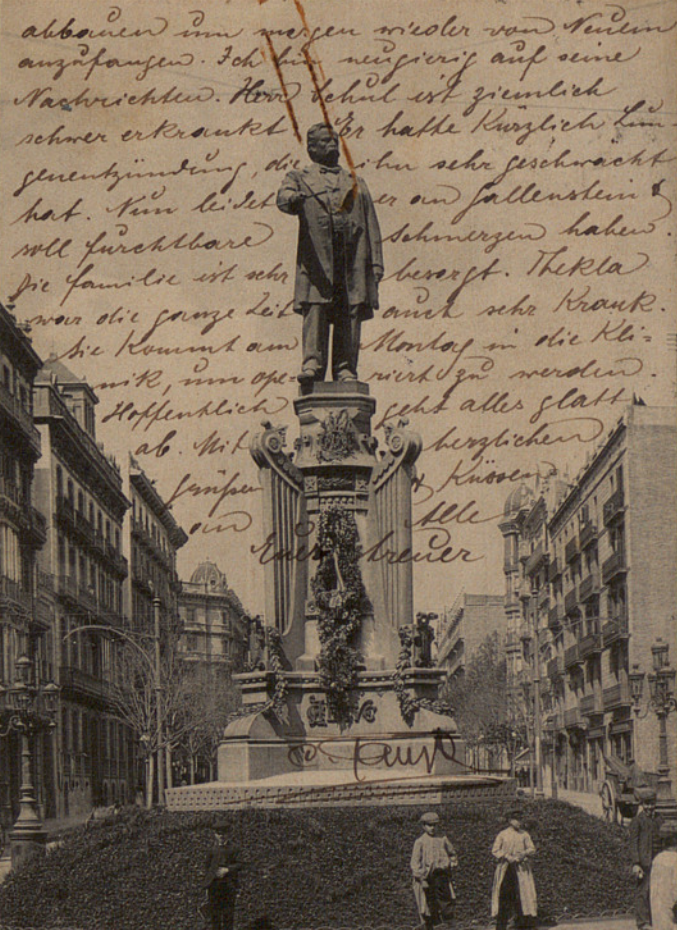 abbauen um morgen wieder von Neuem
anzufangen. Ich bin neugierig auf seine
Nachrichten. Herr Schul ist ziemlich
schwer erkrankt. Er hatte Kürzlich Lun-
genentzündung, die ihn sehr geschwächt
hat. Nun leidet er an Gallenstein &
soll furchtbare Schmerzen haben.
Die Familie ist sehr besorgt. Thekla
war die ganze Zeit auch sehr Krank.
Sie Kommt am Montag in die Kli=
nik, um ope= riert zu werden.
Hoffentlich geht alles glatt
ab. Mit herzlichen
Grüßen & Küssen
an Alle
Euer treuer